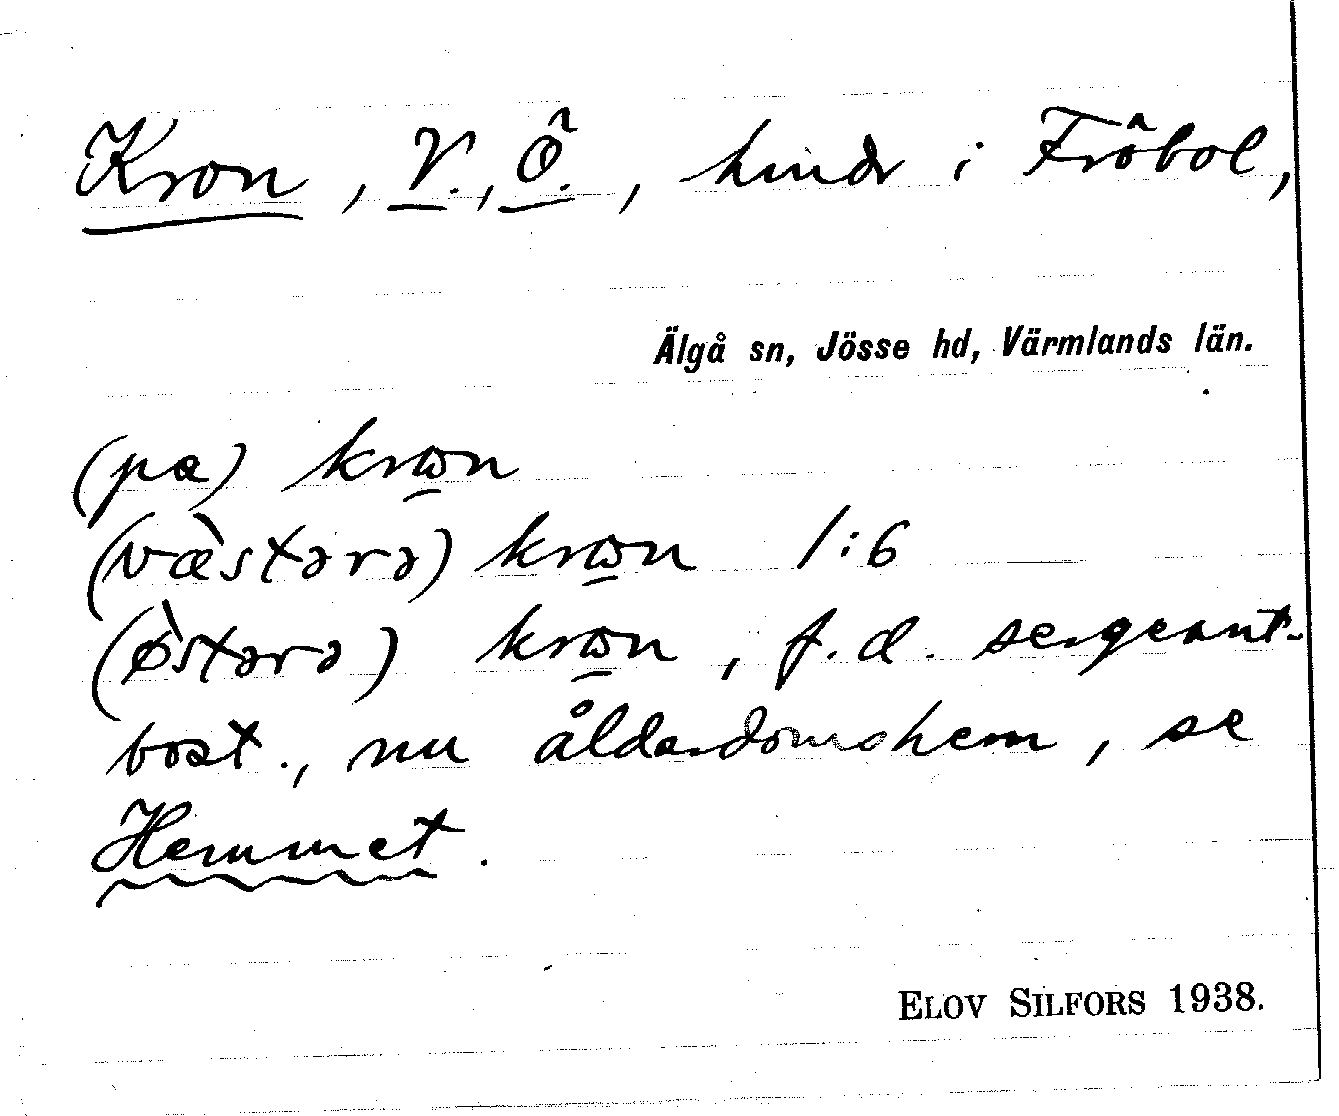 Kron, V., Ö., hmdr i Fröbol,
Älgå sn, Jösse hd, Värmlands län.
(pa) krωn
(væ̀stərə) krωn 1:6
(ø̀stərə) krωn, f.d. sergeant-
bost., nu ålderdomshem, se
Hemmet.
ELOV SILFORS 1938.